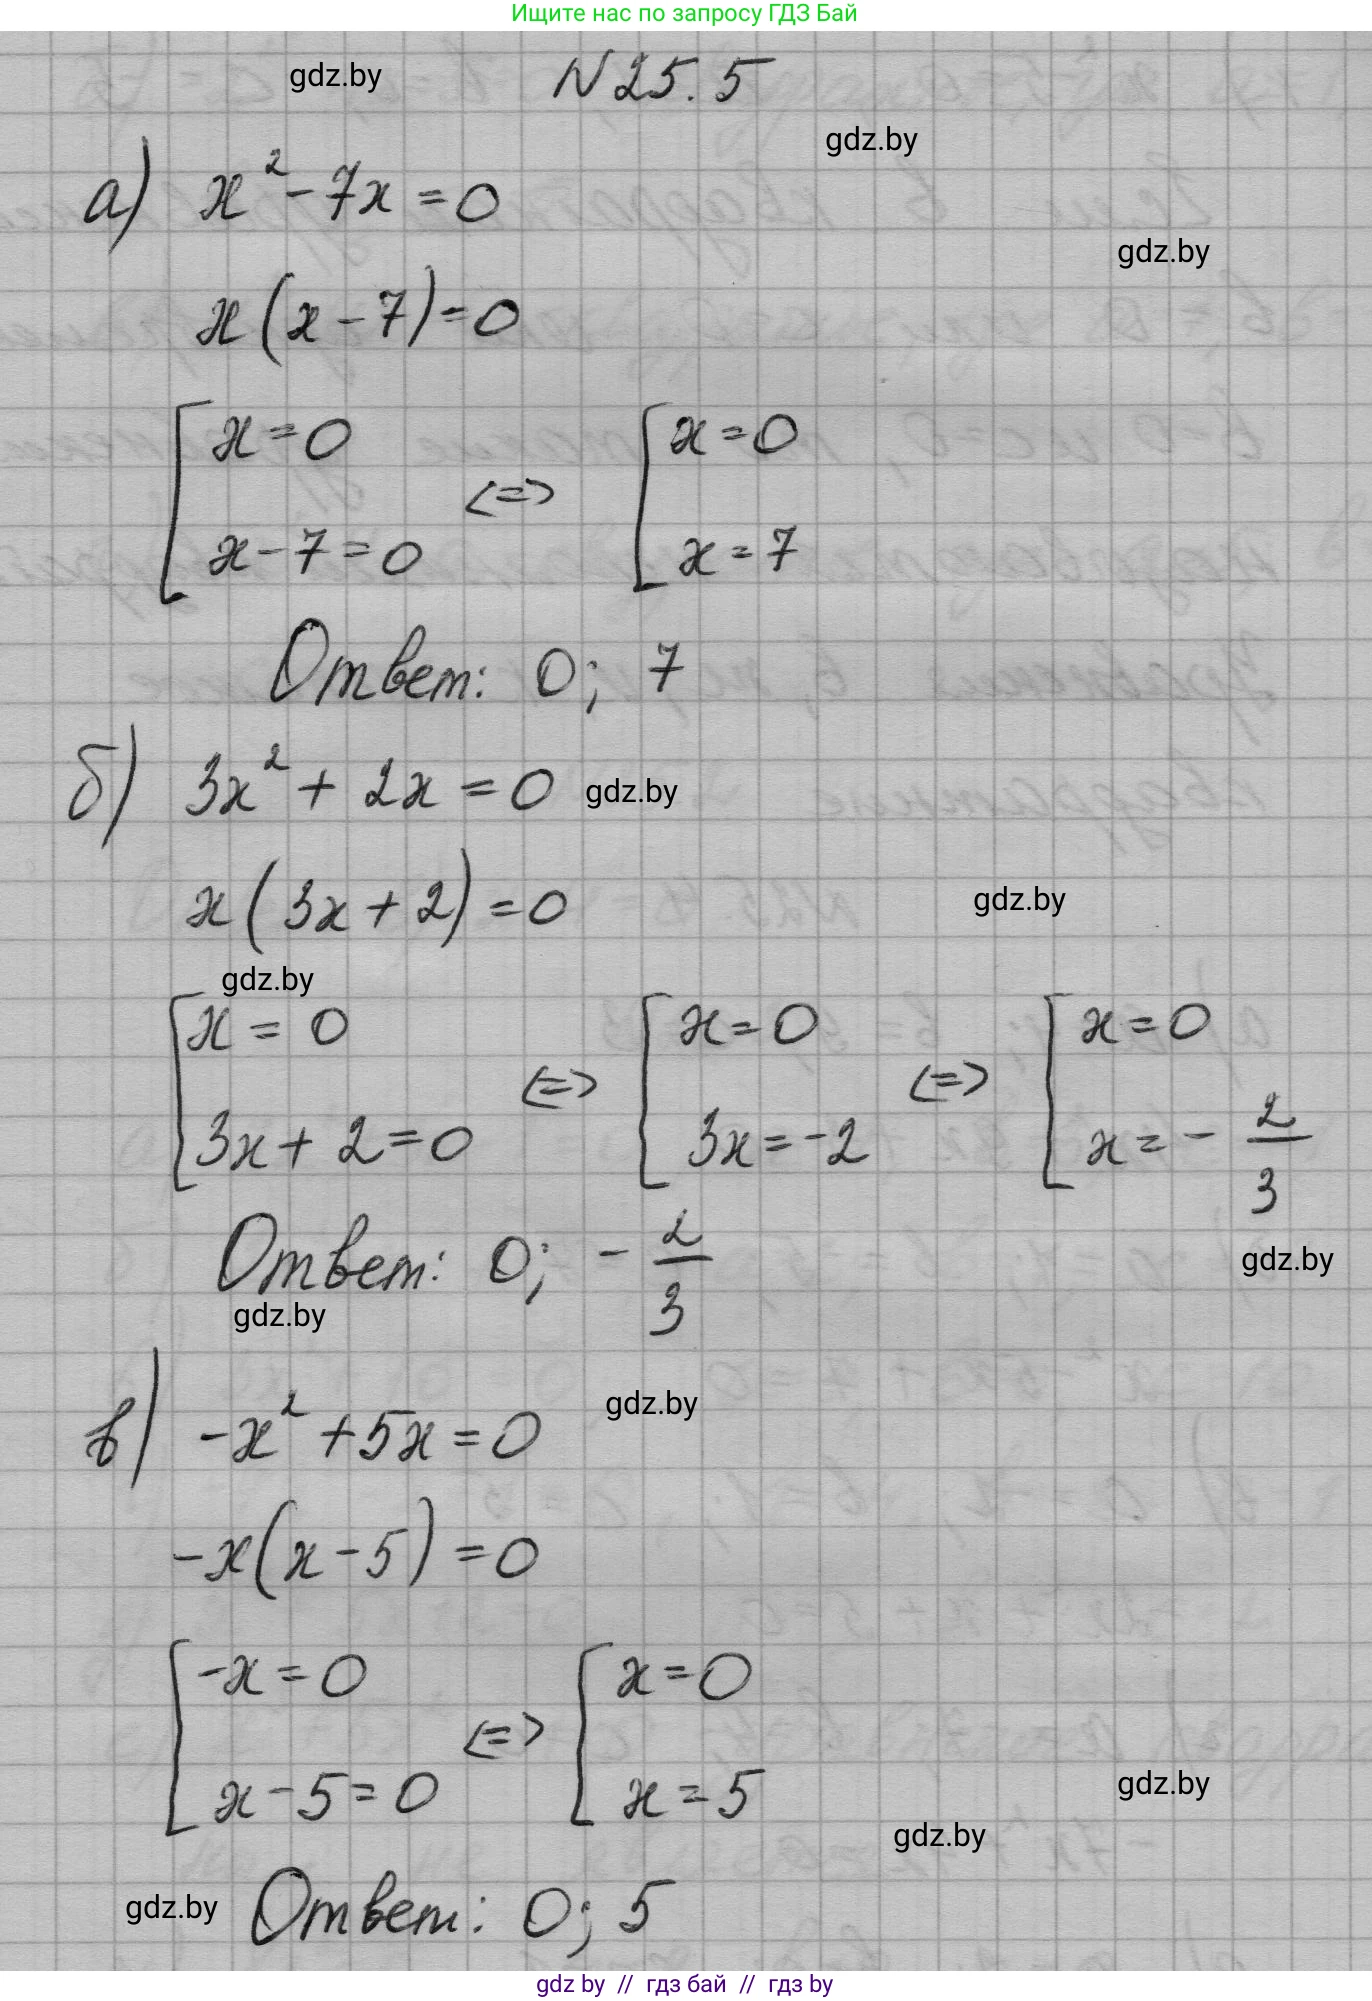 Ищите нас по запросу ГДЗ Бай
gdz.by
N25.5
gdz.by
а) x² - 7x = 0
gdz.by
x(x - 7) = 0
[x = 0 <=> [x = 0
x - 7 = 0 x = 7
Ответ: 0; 7
б) 3x² + 2x = 0 gdz.by
x(3x + 2) = 0 gdz.by
gdz.by
[x = 0 <=> [x = 0 <=> [x = 0
3x + 2 = 0 3x = -2 x = - 2/3
Ответ: 0; - 2/3 gdz.by
gdz.by
в) -x² + 5x = 0 gdz.by
-x(x - 5) = 0
[-x = 0 <=> [x = 0
x - 5 = 0 x = 5 gdz.by
gdz.by
gdz.by Ответ: 0; 5
gdz by // гдз бай // гдз by